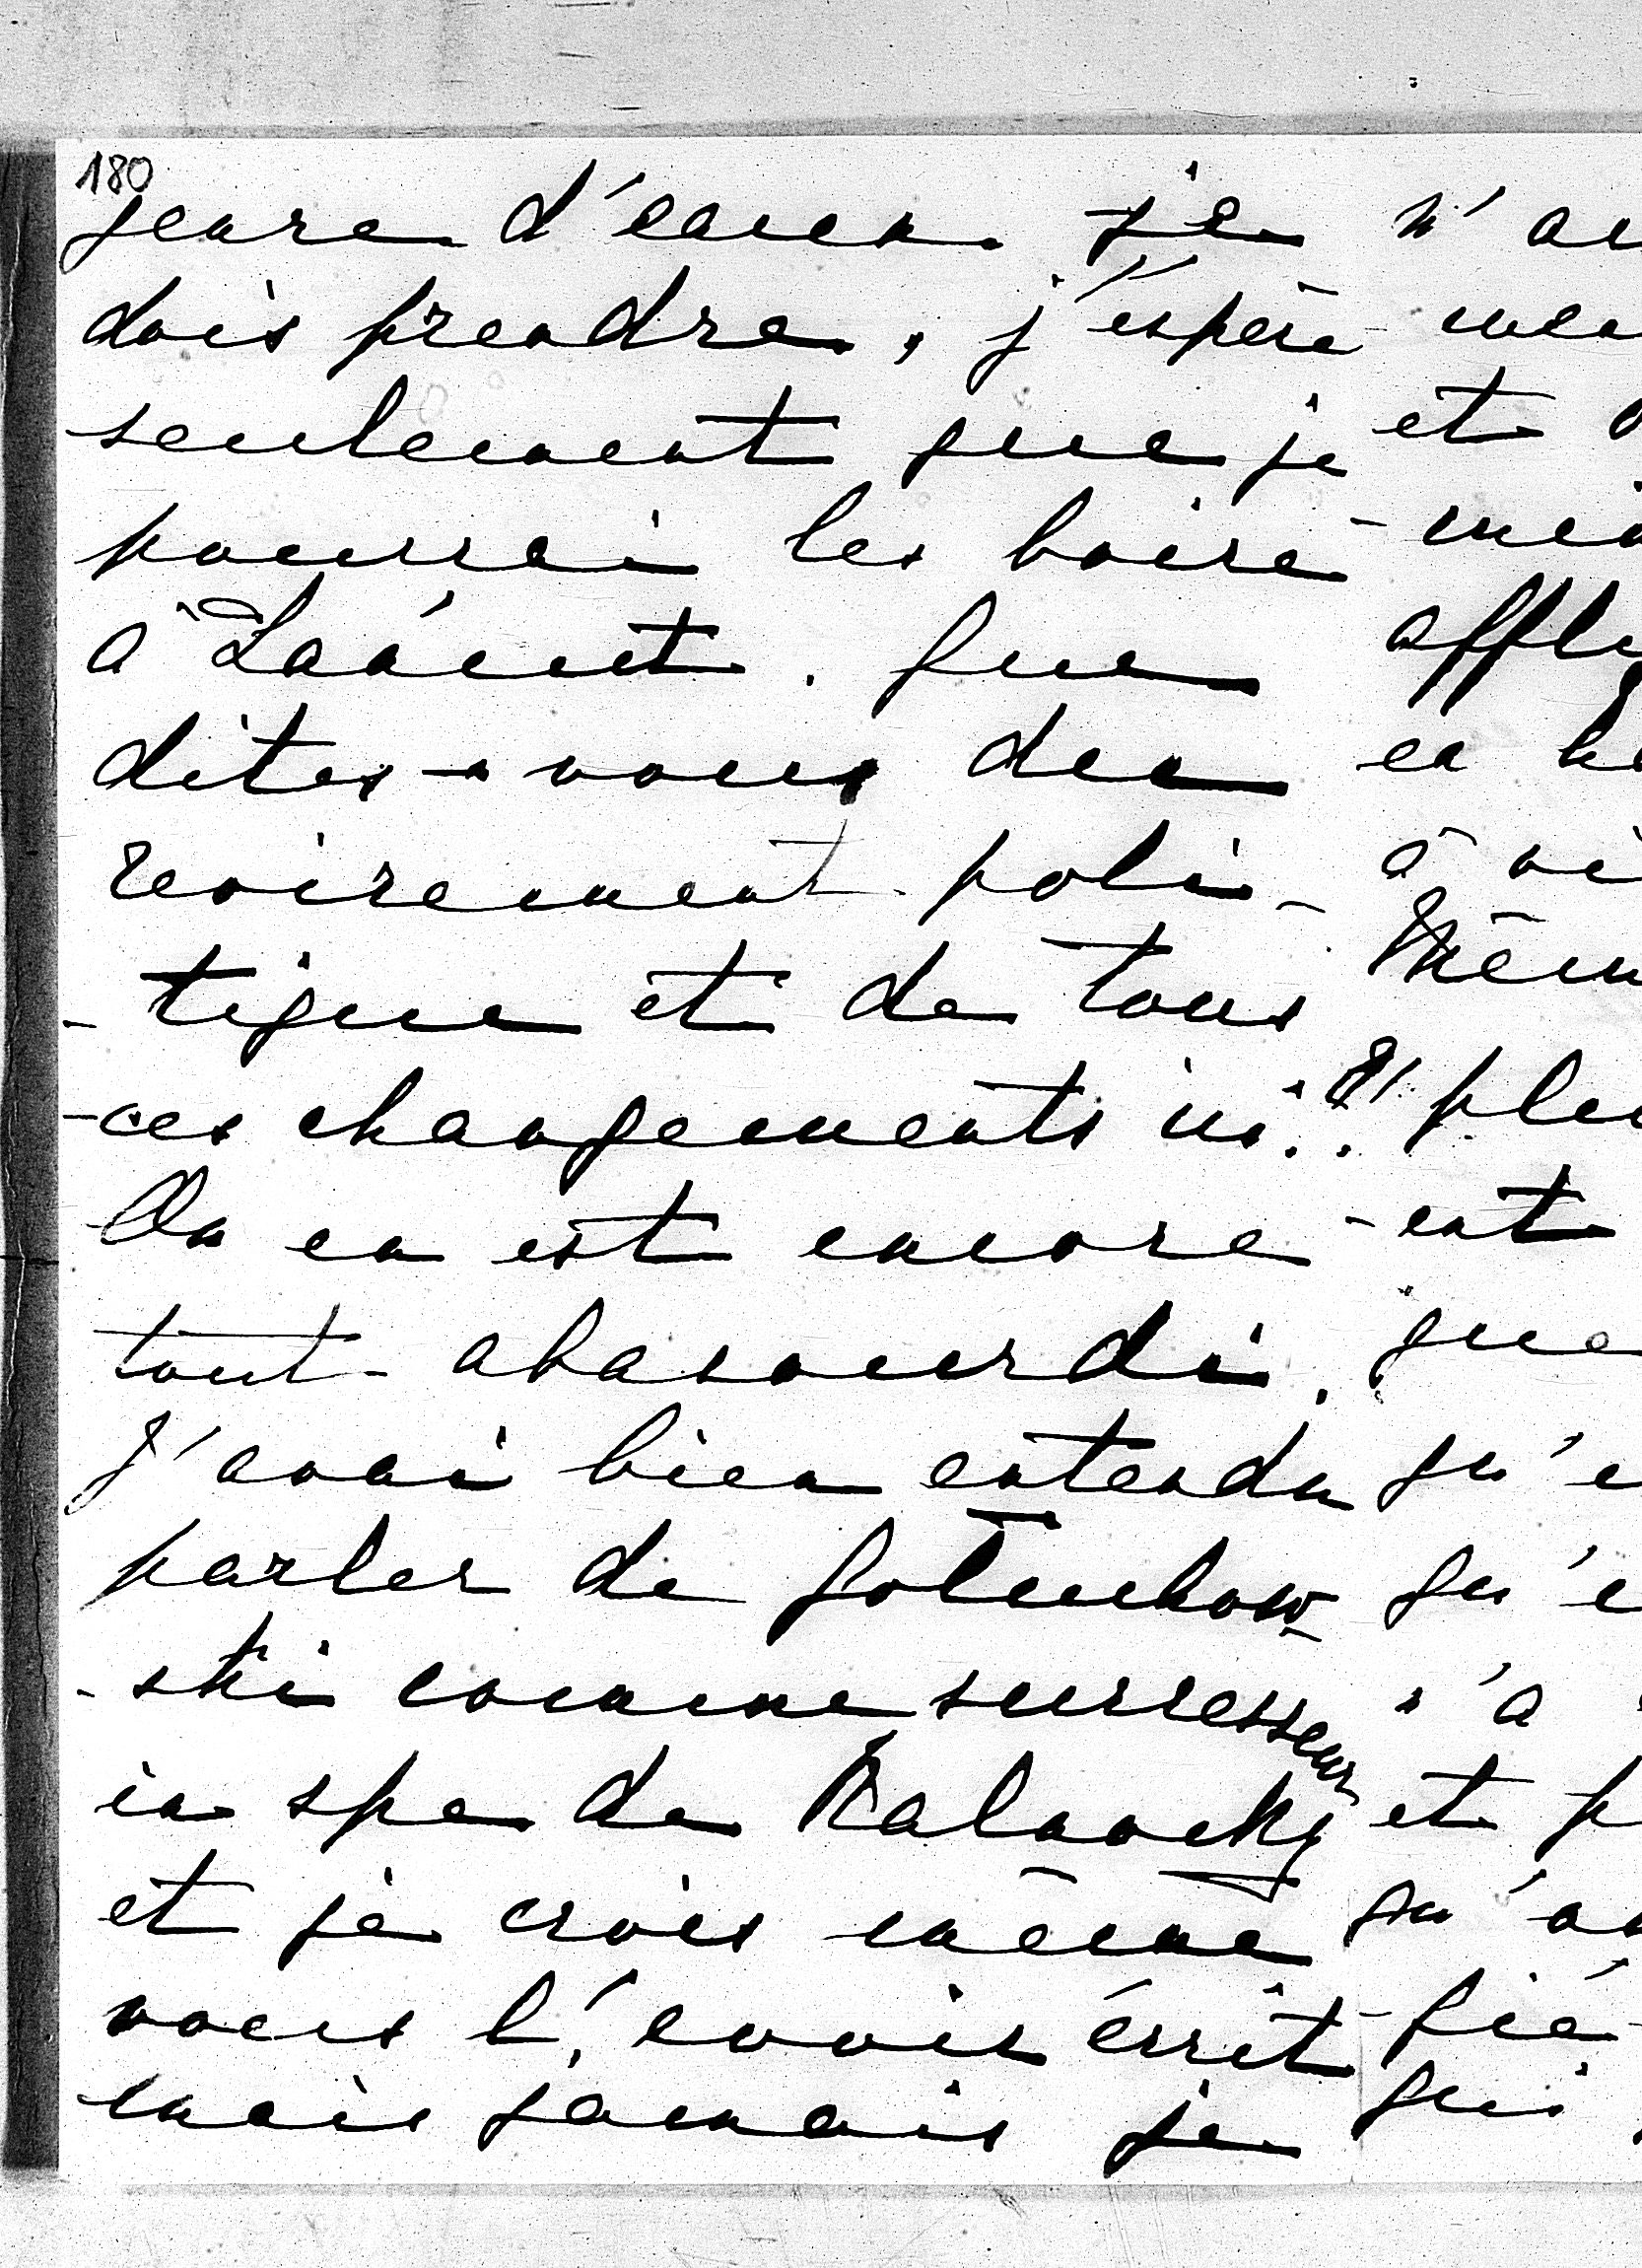 180
genre d'eaux je
dois prendre, j'espère
seulement que je
pourrai les boire
à Laánÿt. Que
dites-vous du
revirement poli-
-tique et de tous
-ces changements ici?!
On en est encore
tout abasourdi.
J'avai bien entendu
parler de Goluchow-
-ski comme successeur
in spe de Kalnoky
et je crois même
vous l'avoir écrit
mais jamais je
n'au
et
affl
à
Mêm
plu
-ent
que
qu'e
qu'e
n'a
et p
qu'on
-fié-
qui